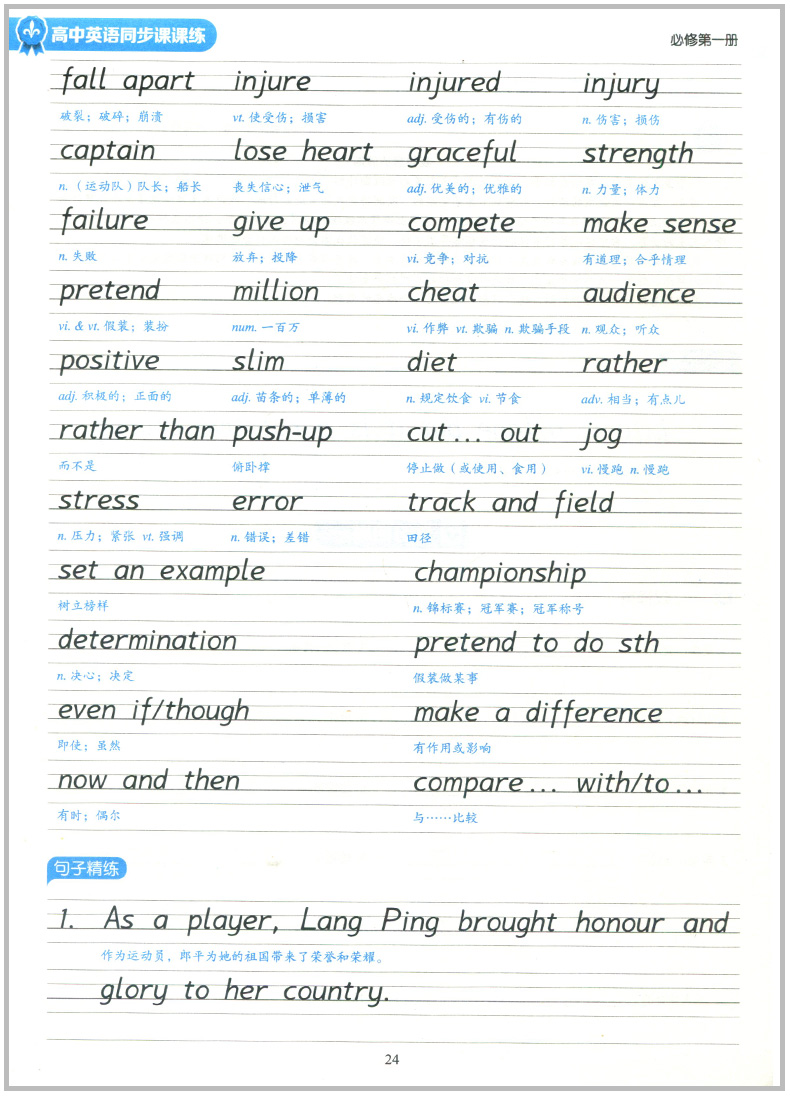 高中英语同步课课练
必修第一册
fall apart injure injured injury
破裂；破碎；崩溃 vt. 使受伤；损害 adj. 受伤的；有伤的 n. 伤害；损伤
captain lose heart graceful strength
n.（运动队）队长；船长 丧失信心；泄气 adj. 优美的；优雅的 n. 力量；体力
failure give up compete make sense
n. 失败 放弃；投降 vi. 竞争；对抗 有道理；合乎情理
pretend million cheat audience
vi. & vt. 假装；装扮 num. 一百万 vi. 作弊 vt. 欺骗 n. 欺骗手段 n. 观众；听众
positive slim diet rather
adj. 积极的；正面的 adj. 苗条的；单薄的 n. 规定饮食 vi. 节食 adv. 相当；有点儿
rather than push-up cut... out jog
而不是 俯卧撑 停止做（或使用、食用） vi. 慢跑 n. 慢跑
stress error track and field
n. 压力；紧张 vt. 强调 n. 错误；差错 田径
set an example championship
树立榜样 n. 锦标赛；冠军赛；冠军称号
determination pretend to do sth
n. 决心；决定 假装做某事
even if/though make a difference
即使；虽然 有作用或影响
now and then compare... with/to...
有时；偶尔 与……比较
句子精练
1. As a player, Lang Ping brought honour and
作为运动员，郎平为她的祖国带来了荣誉和荣耀。
glory to her country.
24